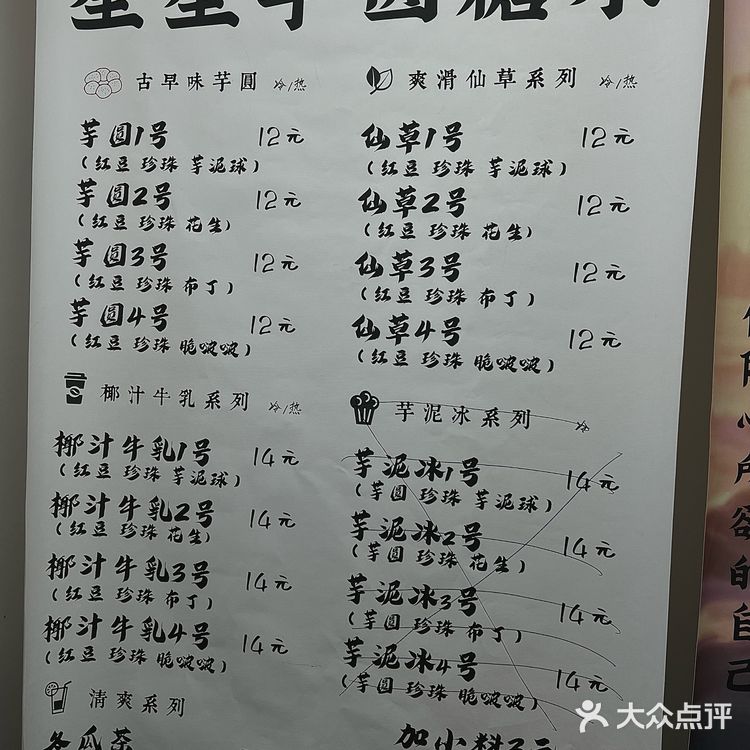 星星芋圆糖水
古早味芋圆 冷/热
芋圆1号 12元
(红豆 珍珠 芋泥球)
芋圆2号 12元
(红豆 珍珠 花生)
芋圆3号 12元
(红豆 珍珠 布丁)
芋圆4号 12元
(红豆 珍珠 脆啵啵)
椰汁牛乳系列 冷/热
椰汁牛乳1号 14元
(红豆 珍珠 芋泥球)
椰汁牛乳2号 14元
(红豆 珍珠 花生)
椰汁牛乳3号 14元
(红豆 珍珠 布丁)
椰汁牛乳4号 14元
(红豆 珍珠 脆啵啵)
清爽系列
冬瓜茶
爽滑仙草系列 冷/热
仙草1号 12元
(红豆 珍珠 芋泥球)
仙草2号 12元
(红豆 珍珠 花生)
仙草3号 12元
(红豆 珍珠 布丁)
仙草4号 12元
(红豆 珍珠 脆啵啵)
芋泥冰系列 冷
芋泥冰1号 14元
(芋圆 珍珠 芋泥球)
芋泥冰2号 14元
(芋圆 珍珠 花生)
芋泥冰3号 14元
(芋圆 珍珠 布丁)
芋泥冰4号 14元
(芋圆 珍珠 脆啵啵)
加小料2元
心所欲的自己
大众点评